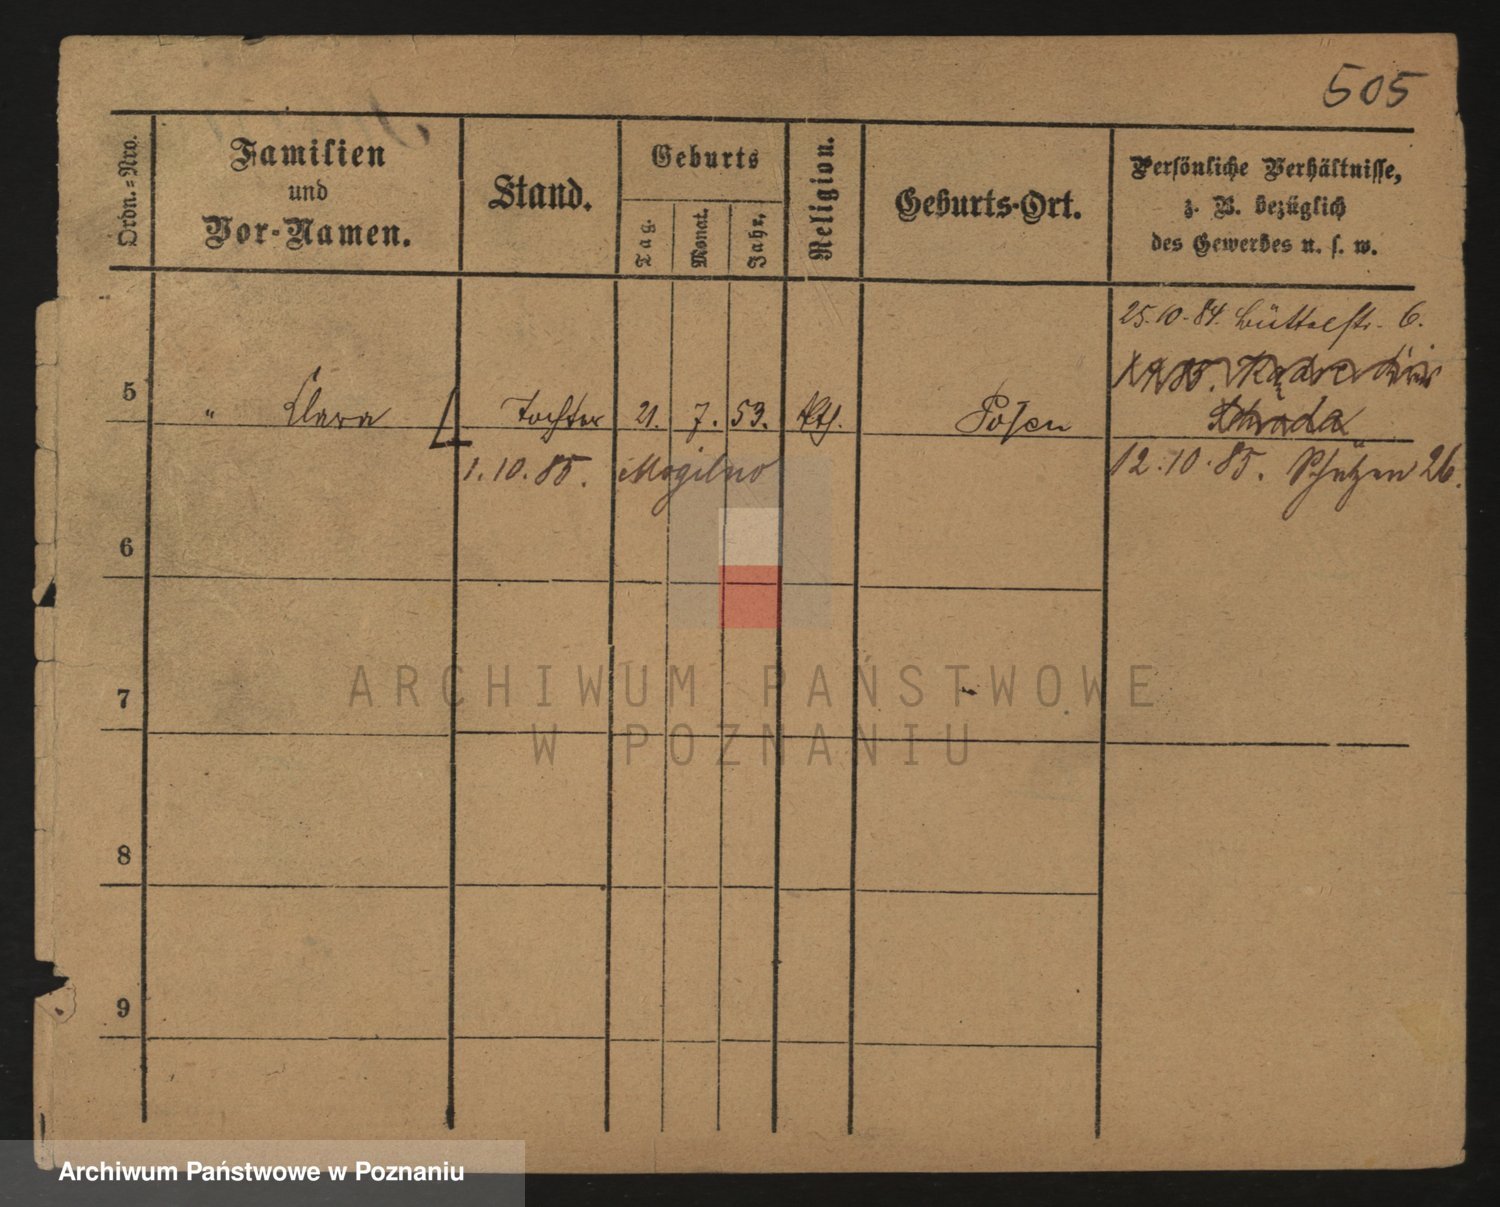 505
Ordn.=Nro.
Familien
und
Vor-Namen.
Stand.
Geburts
Tag.
Monat.
Jahr.
Religion.
Geburts-Ort.
Persönliche Verhältnisse,
z. B. bezüglich
des Gewerbes u. s. w.
25.10.84. Büttelstr. 6.
5 " Clara Tochter 21. 7. 53. kth. Posen
1.10.85. Mogilno
12.10.85. Schützen 26.
6
7
8
9
ARCHIWUM PAŃSTWOWE
W POZNANIU
Archiwum Państwowe w Poznaniu